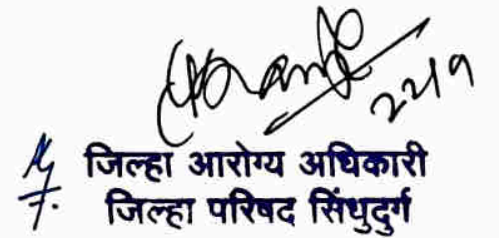 २२/९
जिल्हा आरोग्य अधिकारी
जिल्हा परिषद सिंधुदुर्ग